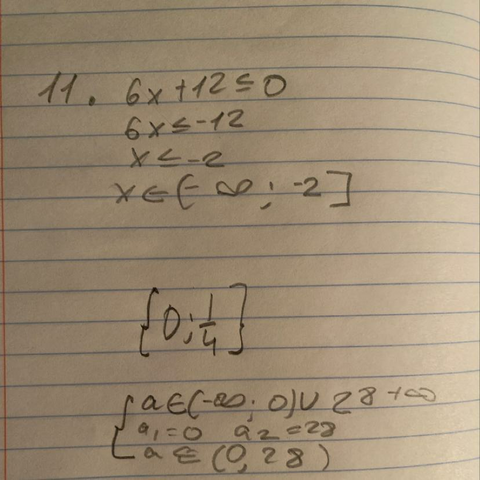 11. 6x+12≤0
6x≤-12
x≤-2
x∈(-∞; -2]
{0; 1/4}
{a∈(-∞; 0)∪28+∞
a₁=0 a₂=28
a∈(0,28)